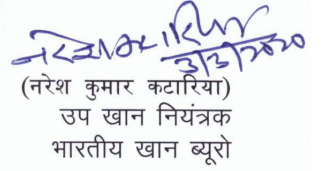 3/3/2020
(नरेश कुमार कटारिया)
उप खान नियंत्रक
भारतीय खान ब्यूरो